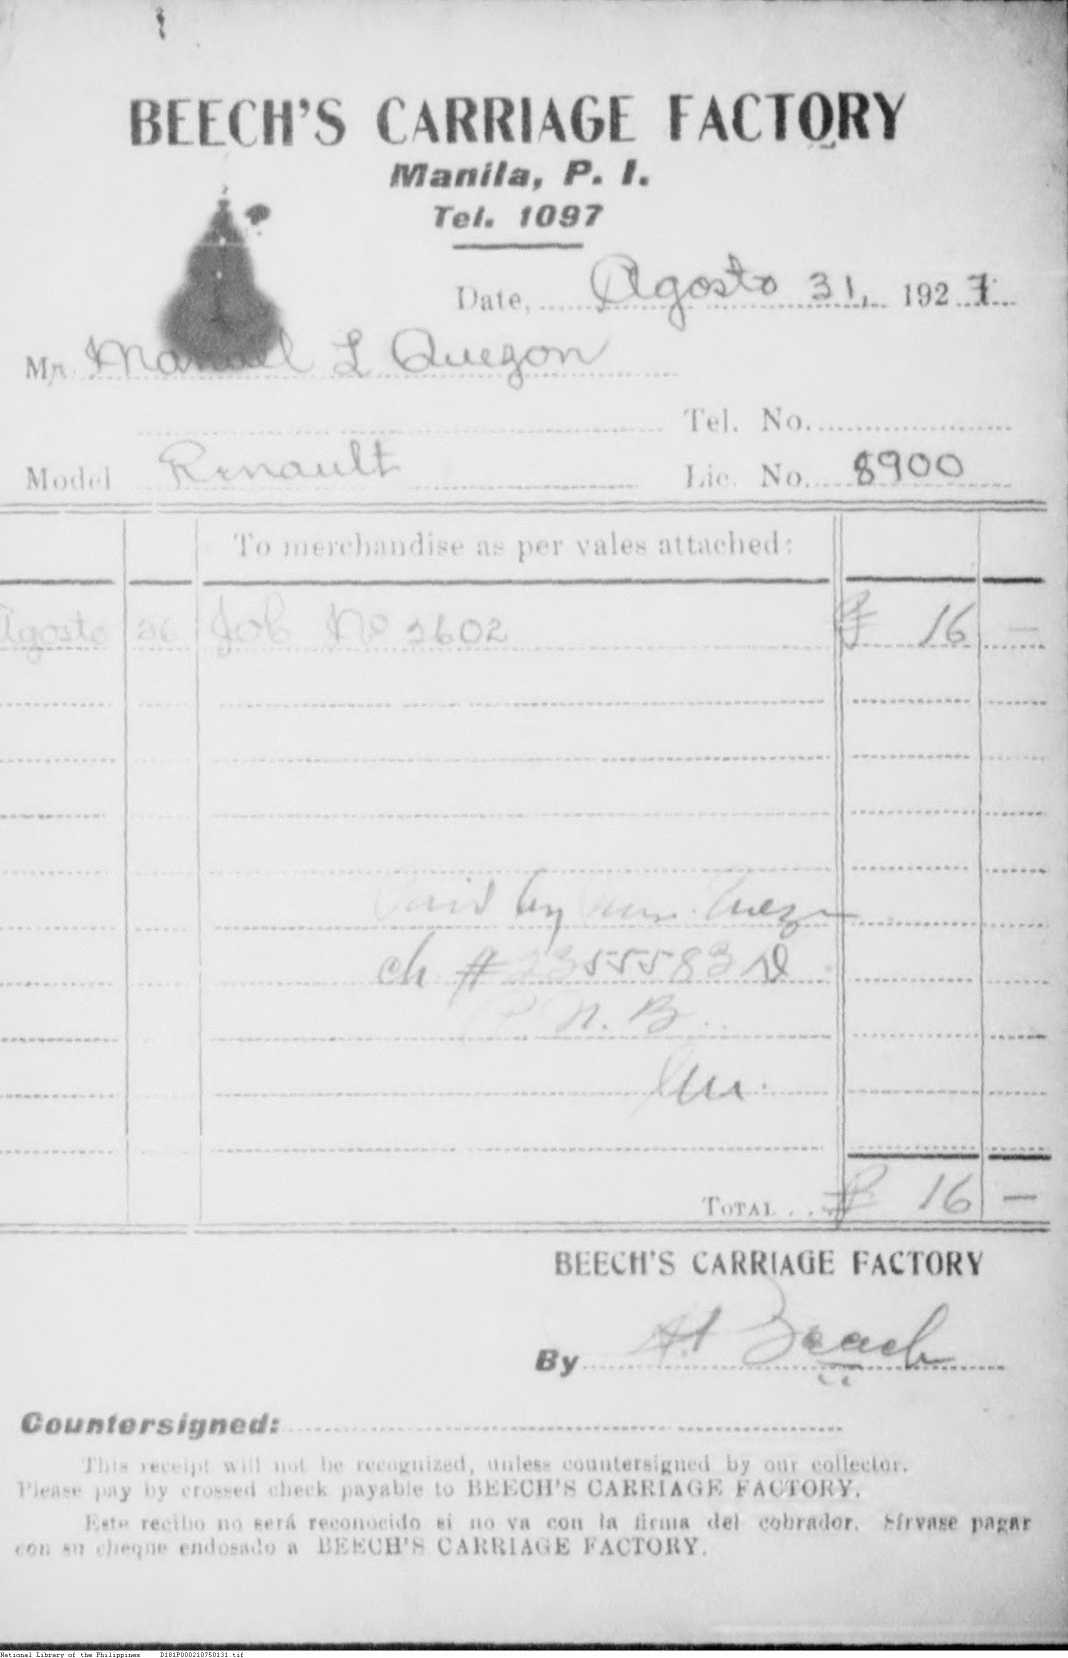 BEECH'S CARRIAGE FACTORY
Manila, P. I.
Tel. 1097
Date, Agosto 31, 1927
Mr. Manuel L Quezon
Tel. No.
Model Renault Lic. No. 8900
To merchandise as per vales attached:
Agosto 26 Job No ₱ 16 —
Paid by
ch #
P. N. B.
TOTAL ... ₱ 16 —
BEECH'S CARRIAGE FACTORY
By
Countersigned:
This receipt will not be recognized, unless countersigned by our collector.
Please pay by crossed check payable to BEECH'S CARRIAGE FACTORY.
Este recibo no será reconocido si no va con la firma del cobrador. Sírvase pagar
con su cheque endosado a BEECH'S CARRIAGE FACTORY.
National Library of the Philippines D181P000210750131.tif